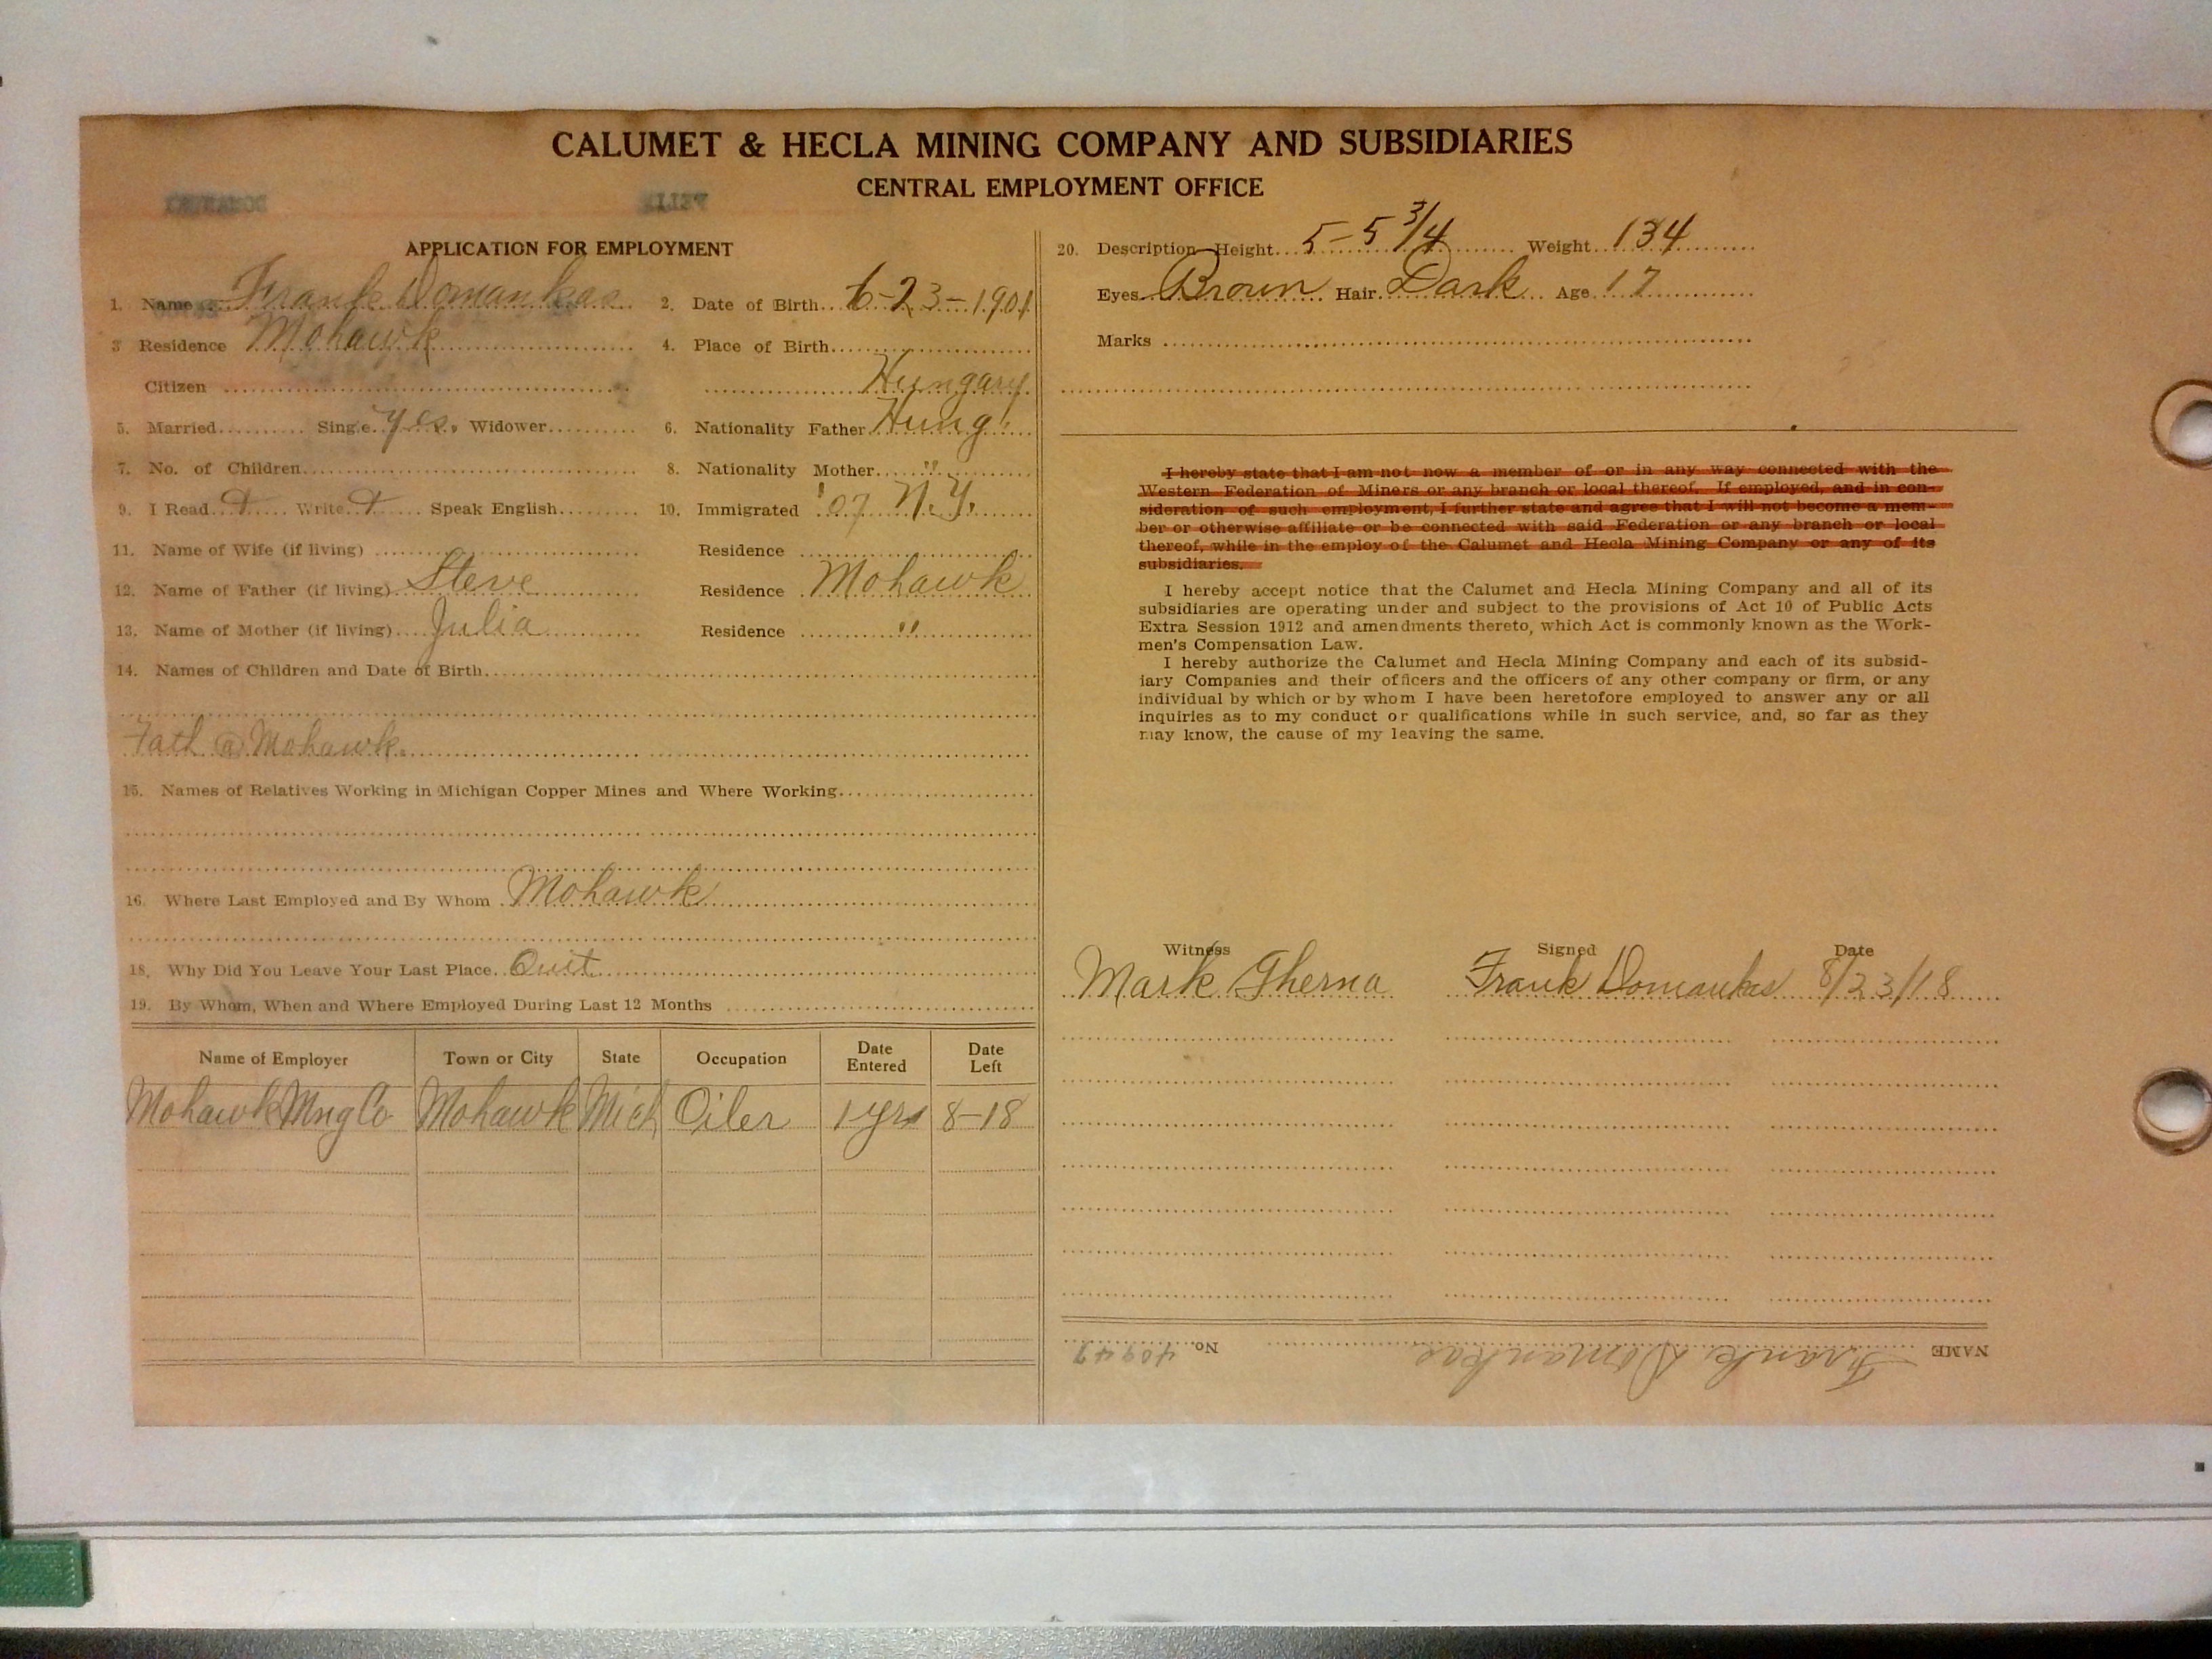 CALUMET & HECLA MINING COMPANY AND SUBSIDIARIES
CENTRAL EMPLOYMENT OFFICE
APPLICATION FOR EMPLOYMENT
1. Name Frank Domankas 2. Date of Birth 6-23-1901
3 Residence Mohawk 4. Place of Birth
Citizen Hungary
5. Married Single Yes. Widower 6. Nationality Father Hung.
7. No. of Children 8. Nationality Mother "
9. I Read Write Speak English 10. Immigrated '07 N.Y.
11. Name of Wife (if living) Residence
12. Name of Father (if living) Steve Residence Mohawk
13. Name of Mother (if living) Julia Residence "
14. Names of Children and Date of Birth
Fath @ Mohawk.
15. Names of Relatives Working in Michigan Copper Mines and Where Working
16. Where Last Employed and By Whom Mohawk
18. Why Did You Leave Your Last Place Quit
19. By Whom, When and Where Employed During Last 12 Months
Name of Employer Town or City State Occupation Date Entered Date Left
Mohawk Mng Co Mohawk Mich Oiler 1 yrs 8-18
20. Description Height 5-5 3/4 Weight 134
Eyes Brown Hair Dark Age 17
Marks
I hereby state that I am not now a member of or in any way connected with the
Western Federation of Miners or any branch or local thereof. If employed, and in con-
sideration of such employment, I further state and agree that I will not become a mem-
ber or otherwise affiliate or be connected with said Federation or any branch or local
thereof, while in the employ of the Calumet and Hecla Mining Company or any of its
subsidiaries.
I hereby accept notice that the Calumet and Hecla Mining Company and all of its
subsidiaries are operating under and subject to the provisions of Act 10 of Public Acts
Extra Session 1912 and amendments thereto, which Act is commonly known as the Work-
men's Compensation Law.
I hereby authorize the Calumet and Hecla Mining Company and each of its subsid-
iary Companies and their officers and the officers of any other company or firm, or any
individual by which or by whom I have been heretofore employed to answer any or all
inquiries as to my conduct or qualifications while in such service, and, so far as they
may know, the cause of my leaving the same.
Witness Signed Date
Mark Gherna Frank Domankas 8/23/18
NAME Frank Domankas No. 40947